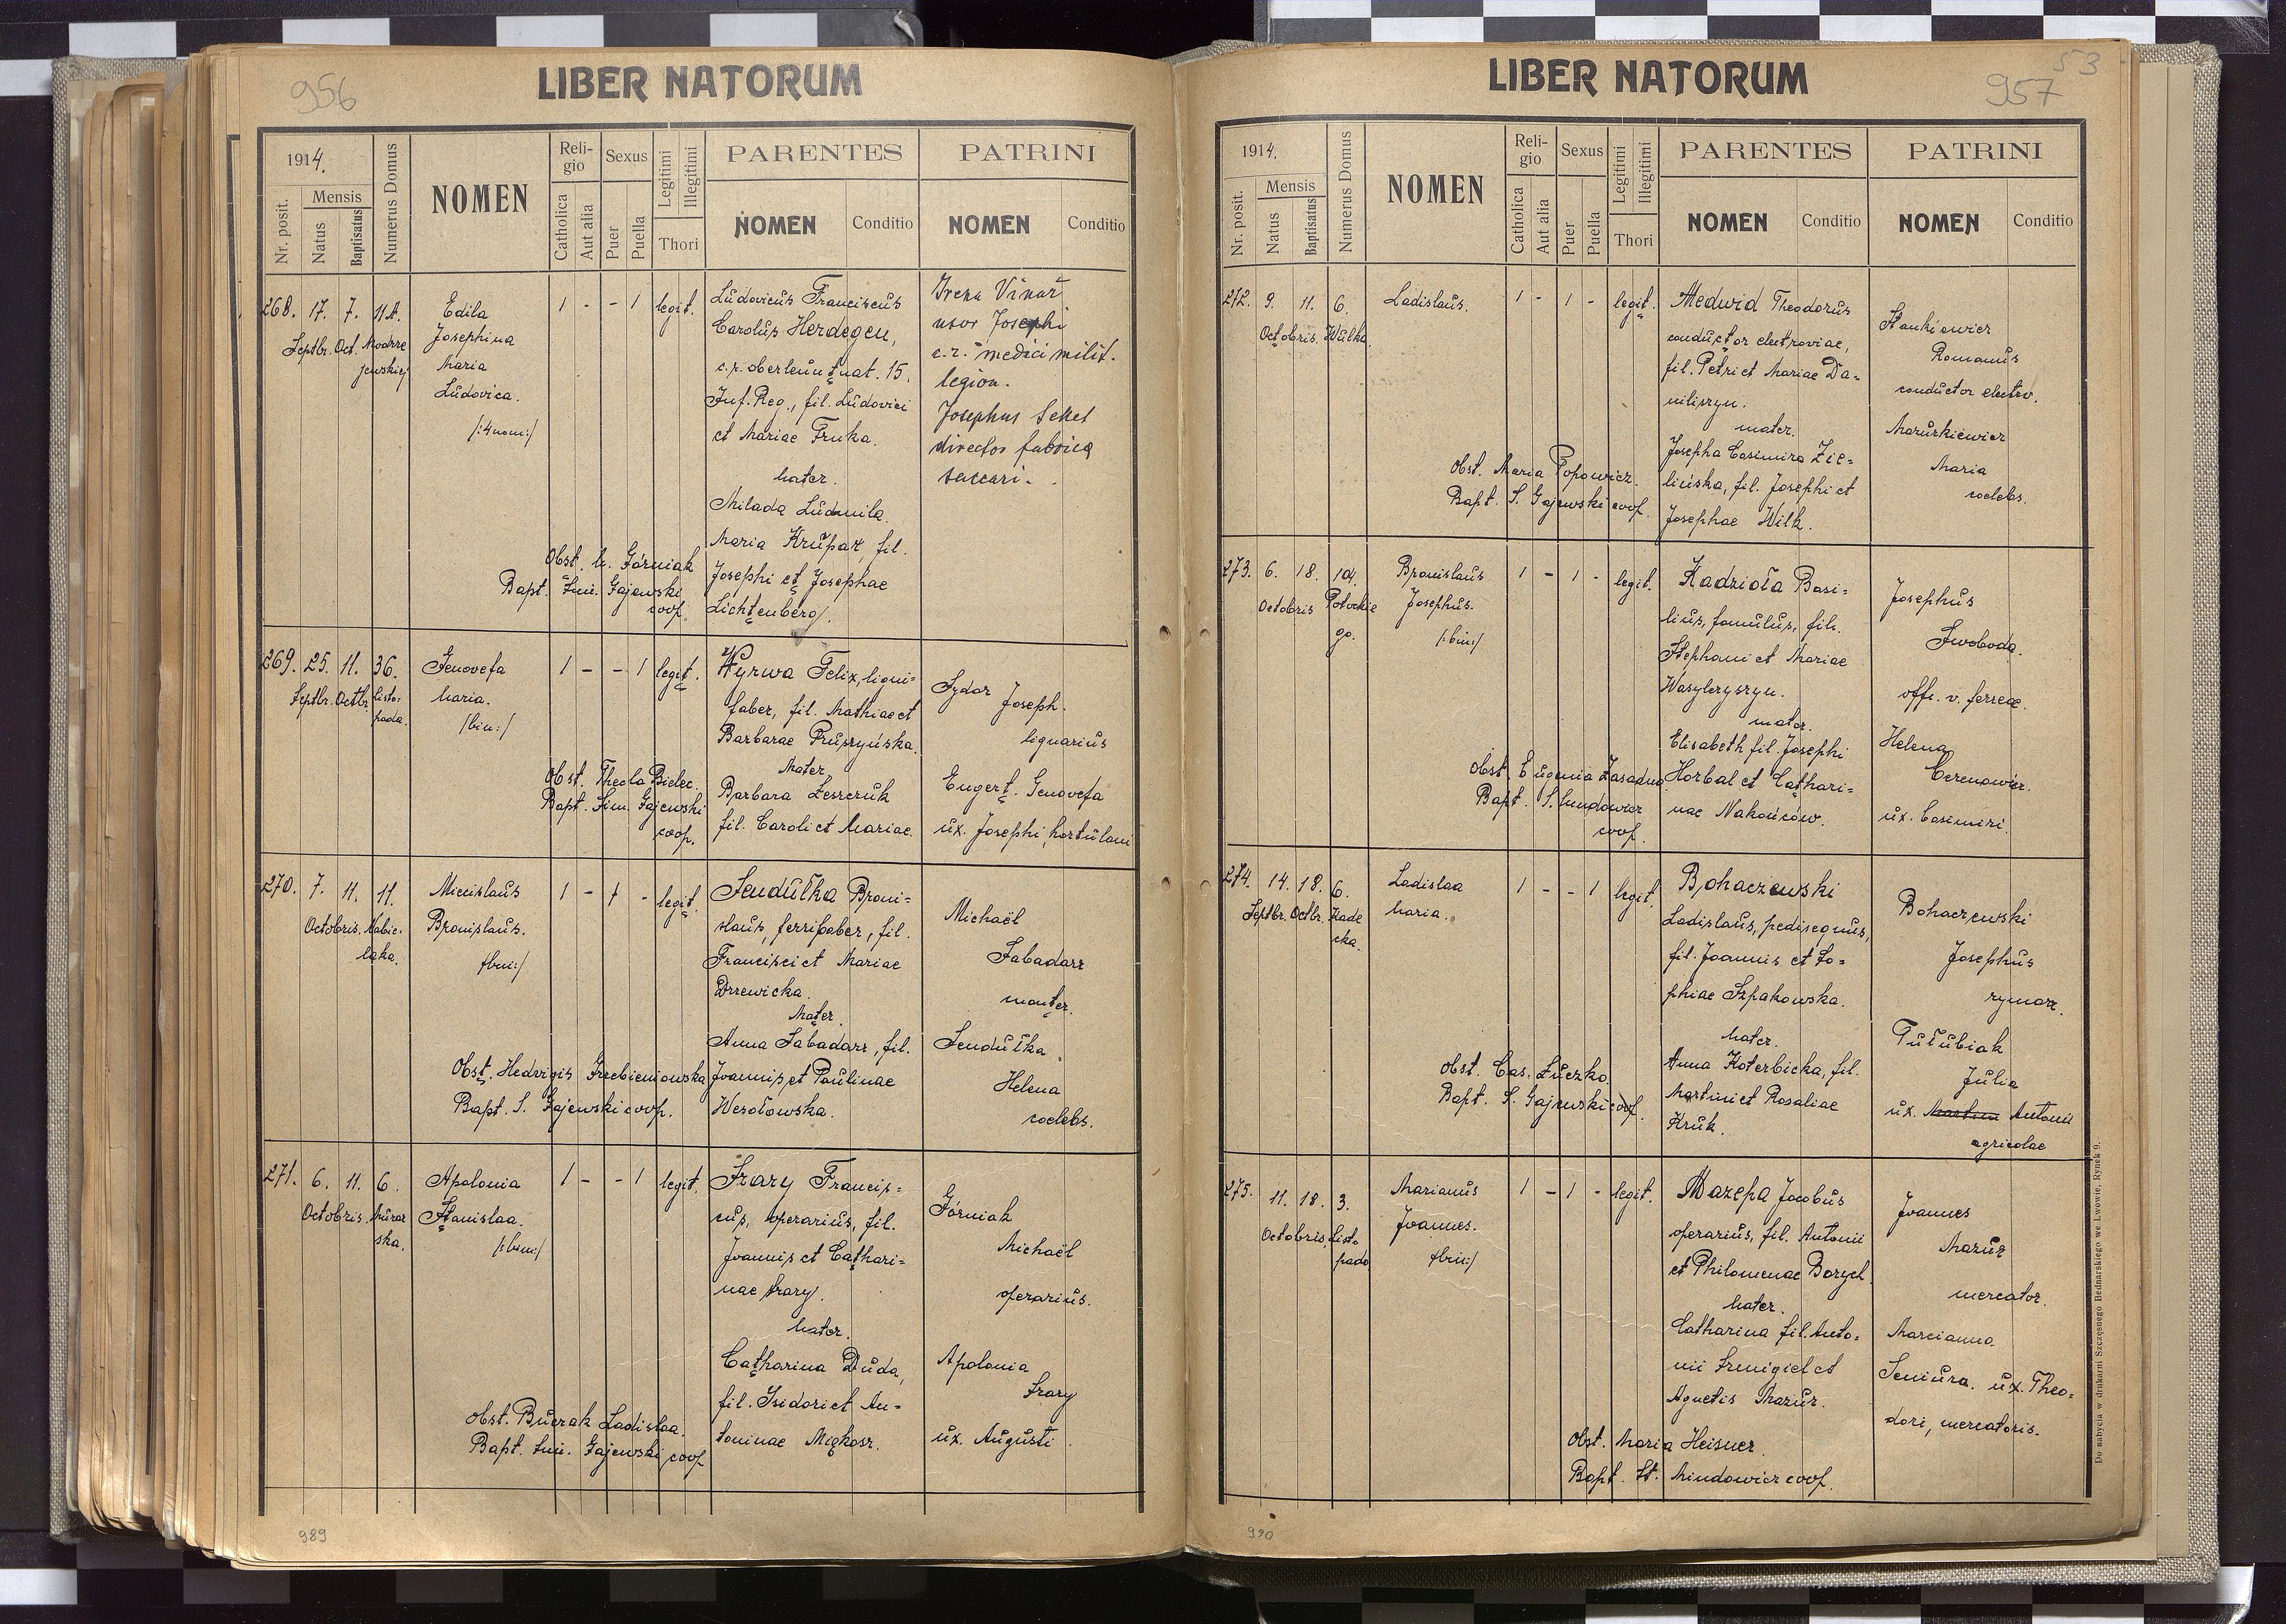 956
LIBER NATORUM
1914.
Nr. posit.
Mensis
Natus
Baptisatus
Numerus Domus
NOMEN
Religio
Catholica
Aut alia
Sexus
Puer
Puella
Legitimi
Illegitimi
Thori
PARENTES
NOMEN
Conditio
PATRINI
NOMEN
Conditio
268. 17. 7. 11A.
Septbr. Oct. Modrze
jewskiej
Edila
Josephina
Maria
Ludovica.
/:4 nom:/
1 - - 1 legit.
Ludovicus Franciscus
Carolus Herdegen,
c.r. oberleutnat. 15.
Inf. Reg., fil. Ludovici
et Mariae Fruka.
Mater.
Milada Ludmila
Maria Krupař, fil.
Josephi et Josephae
Lichtenberg/.
Irena Vinař
uxor Josephi
c.r. medici milit.
legion.
Josephus Seket
director fabrica
saccari.
Obst. M. Górniak
Bapt. Sim. Gajewski
coop.
269. 25. 11. 36.
Septbr. Octbr. Listo-
pada.
Genovefa
Maria.
/bin:/
1 - - 1 legit.
Wyrwa Felix, ligni-
faber, fil. Mathiae et
Barbarae Pruszyńska.
Mater
Barbara Leszczuk
fil. Caroli et Mariae.
Sydor Joseph.
lignarius
Engert. Genovefa
ux. Josephi, hortulani
Obst. Thecla Bielec.
Bapt. Sim. Gajewski
coop.
270. 7. 11. 11.
Octobris. Nabie-
laka.
Miecislaus
Bronislaus.
/bin:/
1 - 1 - legit.
Sendułka Broni-
slaus, ferrifaber, fil.
Francisci et Mariae
Drzewicka.
Mater.
Anna Sabadasz, fil.
Joannis et Paulinae
Wesołowska.
Michaël
Sabadasz
monter.
Sendułka
Helena
coelebs.
Obst. Hedvigis Grzebieniowska
Bapt. S. Gajewski coop.
271. 6. 11. 6.
Octobris. Murar
ska.
Apolonia
Stanislaa.
/:bin:/
1 - - 1 legit.
Szary Francis-
cus, operarius, fil.
Joannis et Cathari-
nae Szary.
Mater.
Catharina Duda,
fil. Isidori et An-
toninae Miękosz.
Górniak
Michaël
operarius.
Apolonia
Szary
ux. Augusti.
Obst. Buczak Ladislaa.
Bapt. Sim. Gajewski coop.
989
53
957
LIBER NATORUM
1914.
Nr. posit.
Mensis
Natus
Baptisatus
Numerus Domus
NOMEN
Religio
Catholica
Aut alia
Sexus
Puer
Puella
Legitimi
Illegitimi
Thori
PARENTES
NOMEN
Conditio
PATRINI
NOMEN
Conditio
272. 9. 11. 6.
Octobris. Wulka.
Ladislaus.
1 - 1 - legit.
Medwid Theodorus
conductor electroviae,
fil. Petri et Mariae Da-
niliszyn.
mater.
Josepha Casimira Zie-
lińska, fil. Josephi et
Josephae Wilk.
Stankiewicz
Romanus
conductor electro.
Mazurkiewicz
Maria
coelebs.
Obst. Maria Popowicz.
Bapt. S. Gajewski coop.
273. 6. 18. 104.
Octobris Potockie
go.
Bronislaus
Josephus.
/:bin:/
1 - 1 - legit.
Kadzioła Basi-
lius, famulus, fil.
Stephani et Mariae
Wasylczyszyn.
mater.
Elisabeth fil. Josephi
Horbal et Cathari-
nae Nakońców.
Josephus
Swoboda.
offi. v. ferreae.
Helena
Cerenowicz.
ux. Casimiri.
Obst. Eugenia Zasadna
Bapt. S. Mindowicz
coop.
274. 14. 18. 6.
Septbr. Octbr. Kade
cka.
Ladislaa
Maria.
1 - - 1 legit.
Bohaczewski
Ladislaus, pedisequus,
fil. Joannis et So-
phiae Szpakowska.
Mater.
Anna Koterbicka, fil.
Martini et Rosaliae
Kruk.
Bohaczewski
Josephus
rymarz.
Tułubiak
Julia
ux. Martini Antonii
agricolae
Obst. Cas. Łuczko.
Bapt. S. Gajewski coop.
275. 11. 18. 3.
Octobris. Listo
pada
Marianus
Joannes.
/bin:/
1 - 1 - legit.
Mazepa Jacobus
operarius, fil. Antonii
et Philomenae Borych.
Mater.
Catharina fil. Anto-
nii Szmigiel et
Agnetis Mazur.
Joannes
Mazur
mercator.
Marcianna
Seniura. ux. Theo-
dori, mercatoris.
Obst. Maria Heisner.
Bapt. St. Mindowicz coop.
Do nabycia w drukarni Szczęsnego Bednarskiego we Lwowie, Rynek 9.
990